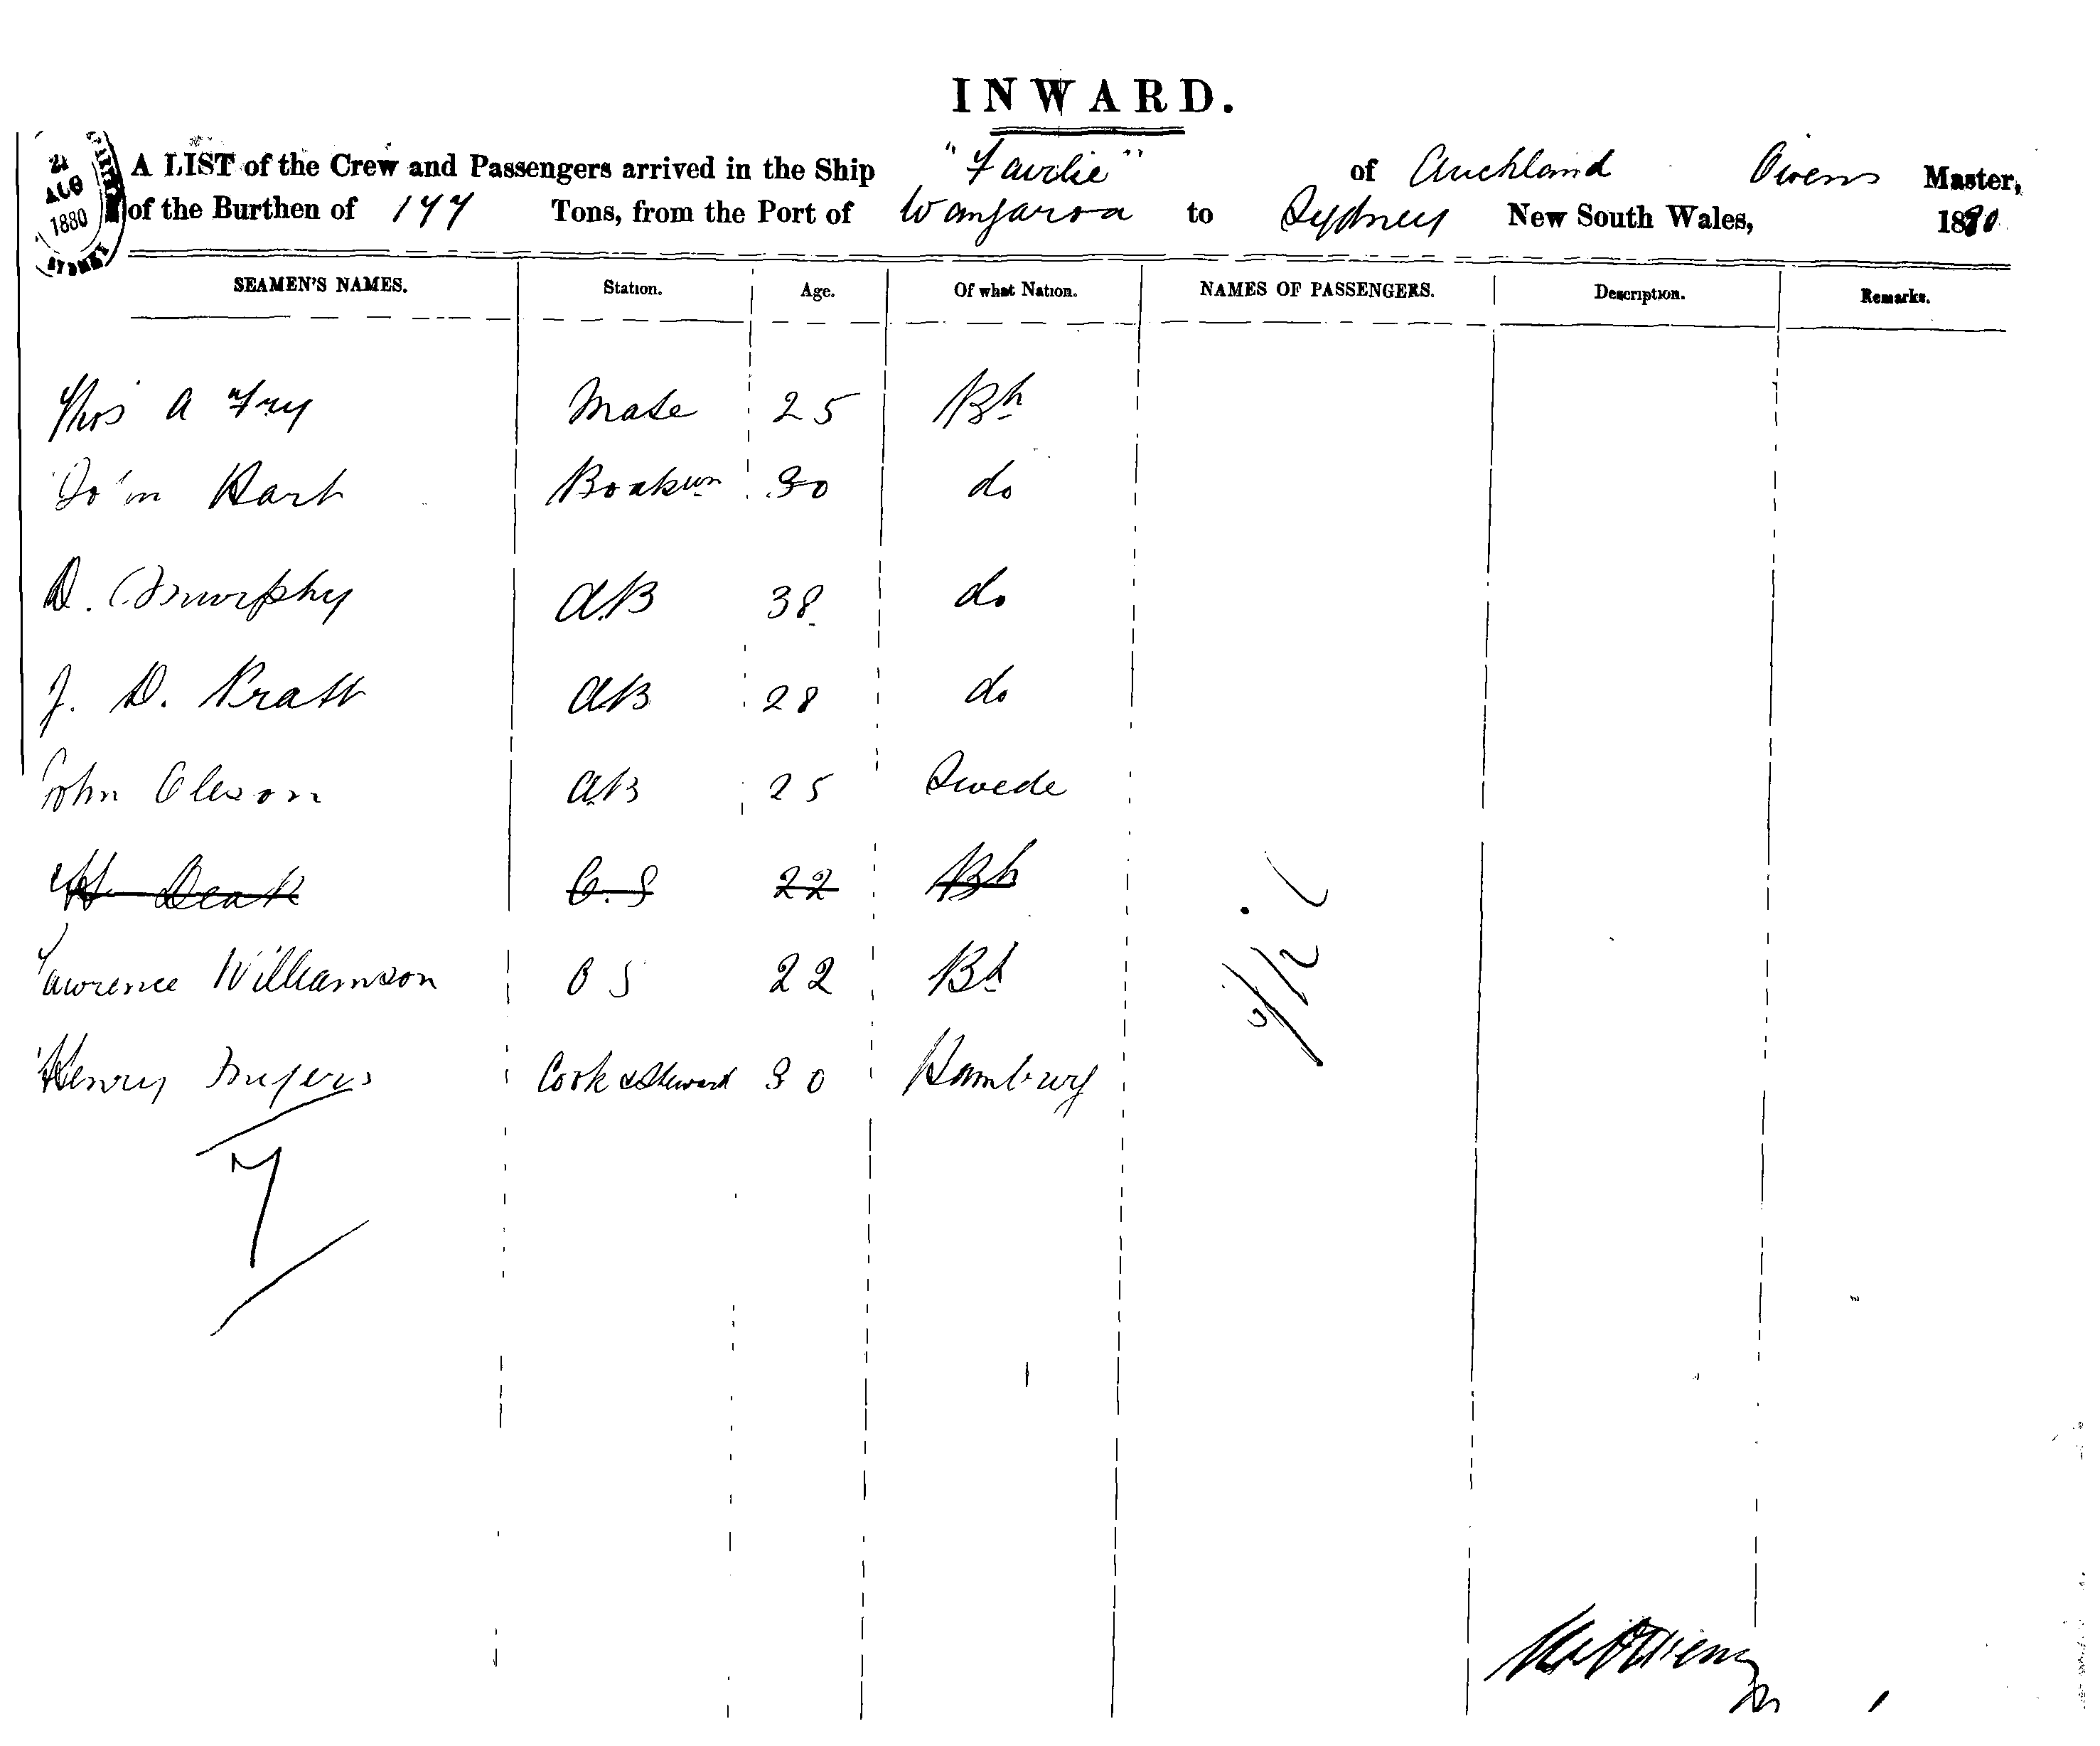 INWARD.
21
AUG
1880
SYDNEY
A LIST of the Crew and Passengers arrived in the Ship "Fairlie" of Auckland Owens Master,
of the Burthen of 177 Tons, from the Port of Wangaroa to Sydney New South Wales, 1880
SEAMEN'S NAMES. Station. Age. Of what Nation. NAMES OF PASSENGERS. Description. Remarks.
Thos A Fry Mate 25 Bh
Hart 30 do
D. AB 38 do
J. D. Pratt AB 28 do
John Oleson AB 25 Swede
22 Bh
Lawrence Williamson OS 22 Bh
Henry Cook & Steward 30 Hamburg
7